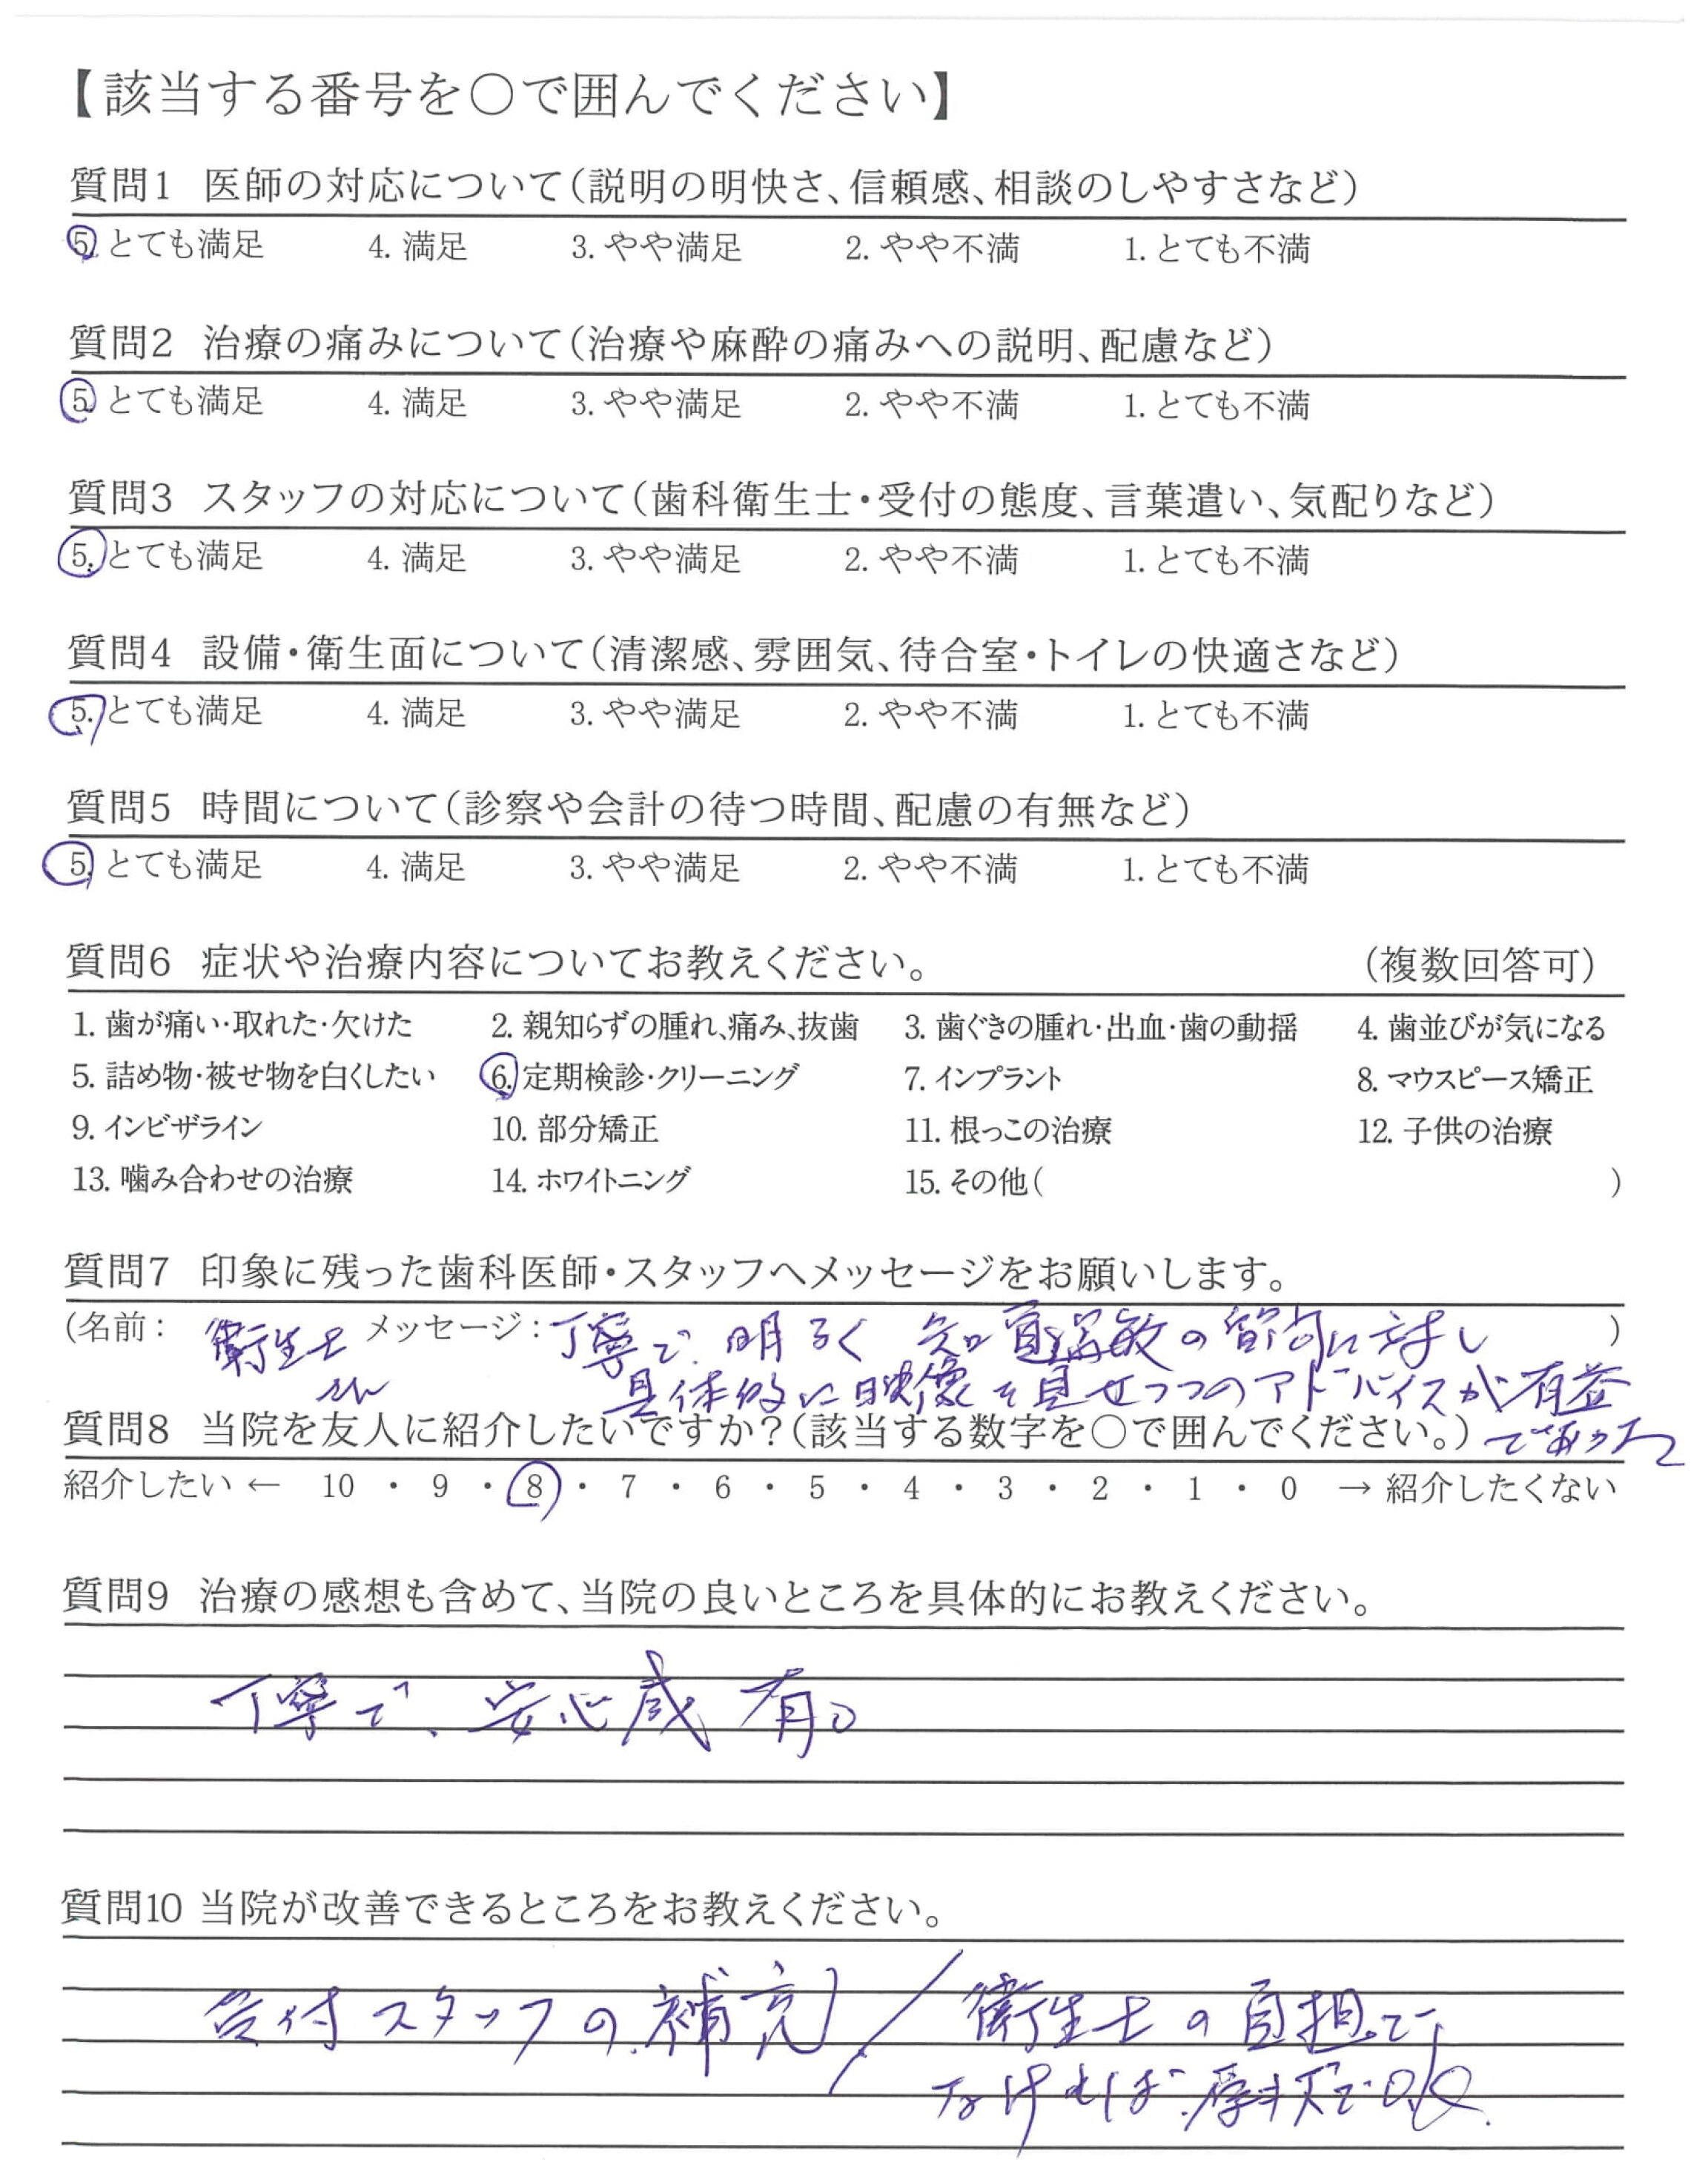 【該当する番号を○で囲んでください】
質問1 医師の対応について(説明の明快さ、信頼感、相談のしやすさなど)
5. とても満足 4. 満足 3. やや満足 2. やや不満 1. とても不満
質問2 治療の痛みについて(治療や麻酔の痛みへの説明、配慮など)
5. とても満足 4. 満足 3. やや満足 2. やや不満 1. とても不満
質問3 スタッフの対応について(歯科衛生士・受付の態度、言葉遣い、気配りなど)
5. とても満足 4. 満足 3. やや満足 2. やや不満 1. とても不満
質問4 設備・衛生面について(清潔感、雰囲気、待合室・トイレの快適さなど)
5. とても満足 4. 満足 3. やや満足 2. やや不満 1. とても不満
質問5 時間について(診察や会計の待つ時間、配慮の有無など)
5. とても満足 4. 満足 3. やや満足 2. やや不満 1. とても不満
質問6 症状や治療内容についてお教えください。 (複数回答可)
1. 歯が痛い・取れた・欠けた 2. 親知らずの腫れ、痛み、抜歯 3. 歯ぐきの腫れ・出血・歯の動揺 4. 歯並びが気になる
5. 詰め物・被せ物を白くしたい 6. 定期検診・クリーニング 7. インプラント 8. マウスピース矯正
9. インビザライン 10. 部分矯正 11. 根っこの治療 12. 子供の治療
13. 噛み合わせの治療 14. ホワイトニング 15. その他( )
質問7 印象に残った歯科医師・スタッフへメッセージをお願いします。
(名前: 衛生士 メッセージ: 丁寧で、明るく 知覚過敏の質問に対し )
さん 具体的に映像を見せつつのアドバイスが有益
質問8 当院を友人に紹介したいですか?(該当する数字を○で囲んでください。) であった
紹介したい ← 10 ・ 9 ・ 8 ・ 7 ・ 6 ・ 5 ・ 4 ・ 3 ・ 2 ・ 1 ・ 0 → 紹介したくない
質問9 治療の感想も含めて、当院の良いところを具体的にお教えください。
丁寧で、安心感有。
質問10 当院が改善できるところをお教えください。
受付スタッフの補充 / 衛生士の負担で
なければ、OK.